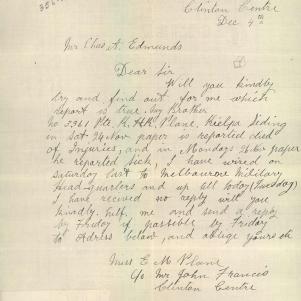 Clinton Centre
Dec 4th
Mr Chas. A. Edmunds
Dear Sir
Will you kindly
try and find out for me which
report is true. my Brother
No 3361 Pte R. H. Plane, Kielpa Siding
in Sat 24 Nov paper is reported died
of Injuries, and in Mondays 26 Nov paper
he reported Sick, I have wired on
Saturday last to Melbourne Military
Head quarters and up till today (Tuesday)
I have received no reply will you
kindly help me and send a reply
by Friday if possible by Friday
to Adress below, and oblige yours etc
Miss E M Plane
C/o Mr John Francis
Clinton Centre